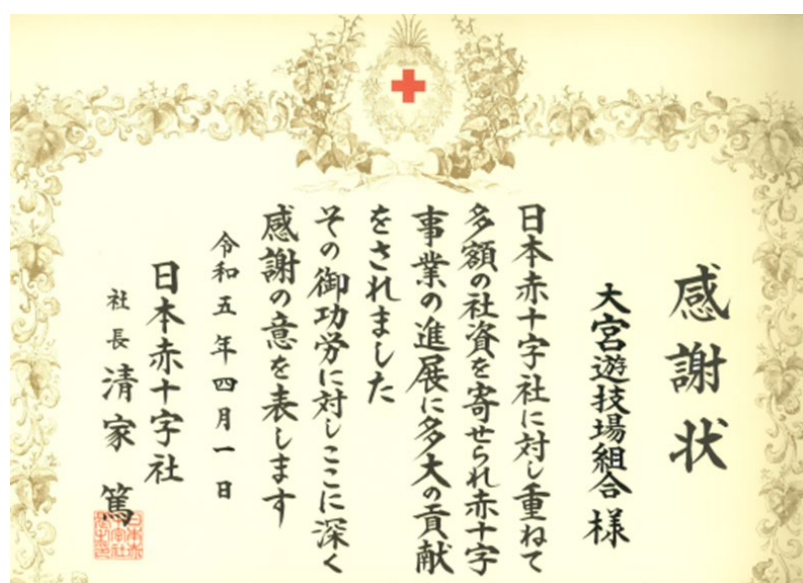 感謝状
大宮遊技場組合様
日本赤十字社に対し重ねて
多額の社資を寄せられ赤十字
事業の進展に多大の貢献
をされました
その御功労に対しここに深く
感謝の意を表します
令和五年四月一日
日本赤十字社
社長 清家 篤